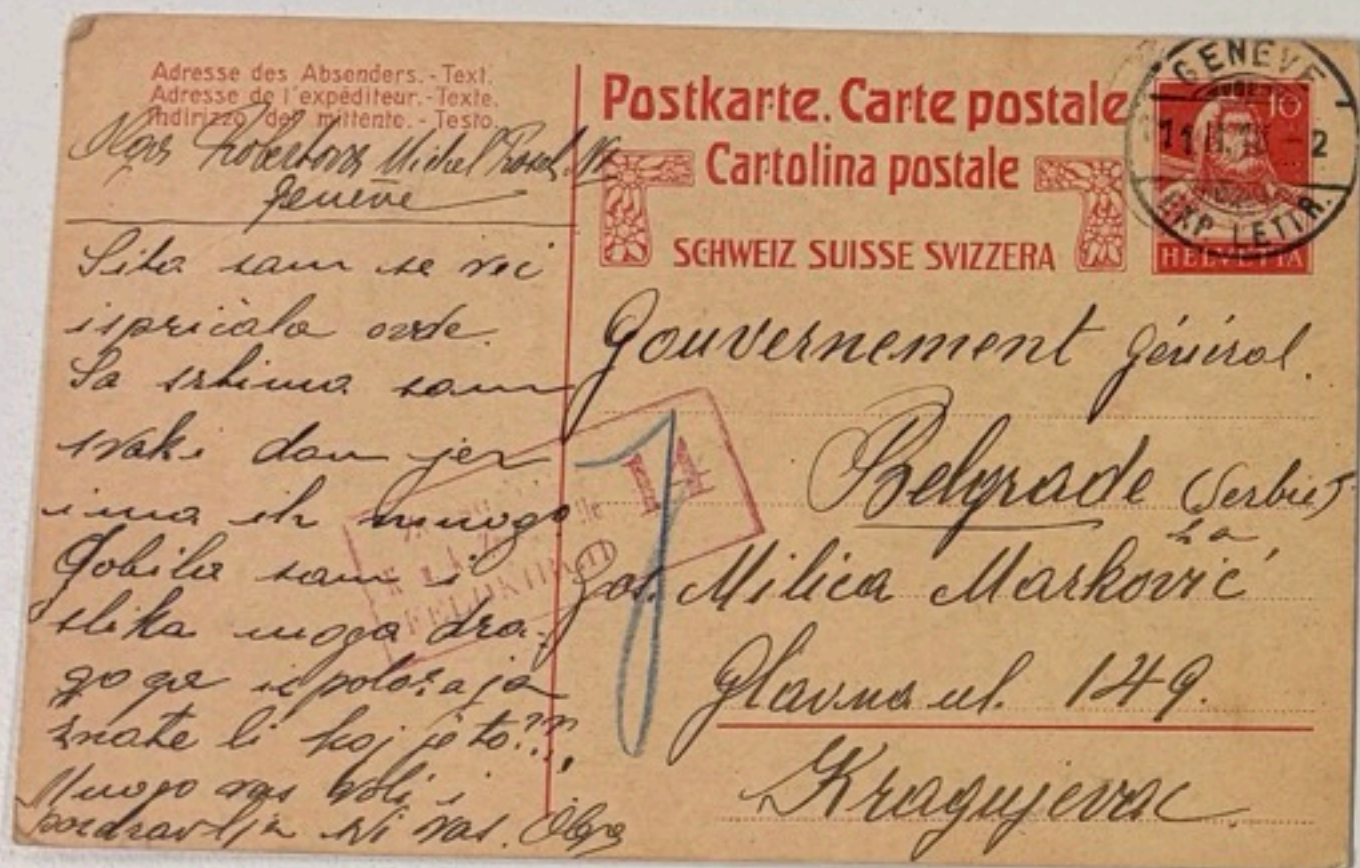 Adresse des Absenders. - Text.
Adresse de l'expéditeur. - Texte.
Indirizzo del mittente. - Testo.
Olga Michel
Genève
Sita sam se već
ispričala ovde.
Sa srbima sam
svaki dan jer
ima ih mnogo
Dobila sam i
slika moga dra-
goga iz položaja
znate li koj je to???
Mnogo vas voli i
pozdravlja svi vas. Olga
Postkarte. Carte postale
Cartolina postale
SCHWEIZ SUISSE SVIZZERA
GENEVE
EXP. LETTR.
10
HELVETIA
Gouvernement général.
Belgrade (Serbie)
za
Gos. Milica Marković
Glavna ul. 149.
Kragujevac
FELDKIRCH